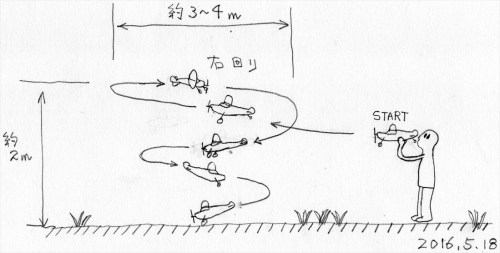 約3~4m
右回り
START
約
2m
2016,5.18